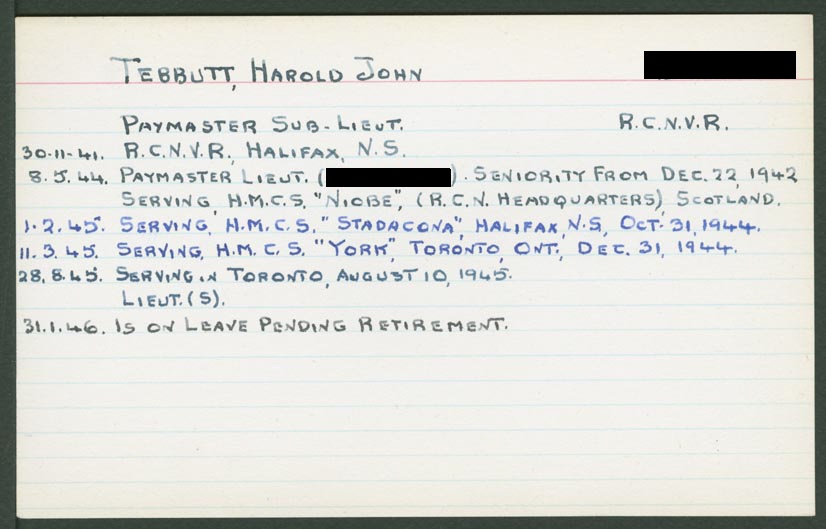 TEBBUTT, HAROLD JOHN
PAYMASTER SUB-LIEUT. R.C.N.V.R.
30-11-41. R.C.N.V.R., HALIFAX, N.S.
8.5.44. PAYMASTER LIEUT. ( ). SENIORITY FROM DEC. 22, 1942
SERVING, H.M.C.S. "NIOBE", (R.C.N. HEADQUARTERS) SCOTLAND.
1.2.45. SERVING, H.M.C.S. "STADACONA", HALIFAX, N.S., OCT. 31, 1944.
11.3.45. SERVING, H.M.C.S. "YORK", TORONTO, ONT., DEC. 31, 1944.
28.8.45. SERVING IN TORONTO, AUGUST 10, 1945.
LIEUT. (S).
31.1.46. IS ON LEAVE PENDING RETIREMENT.